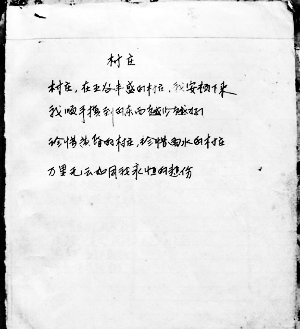 村庄
村庄，在五谷丰盛的村庄，我安顿下来
我顺手摸到的东西越少越好！
珍惜黄昏的村庄，珍惜雨水的村庄
万里无云如同我永恒的悲伤